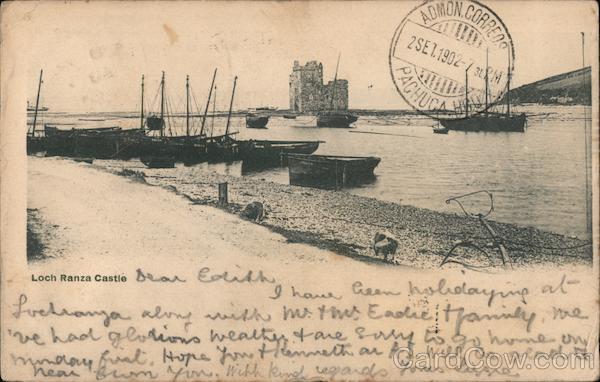 ADMON. CORREOS
2 SET. 1902 - 7 30 PM
PACHUCA
Loch Ranza Castle
Dear Edith
I have been holidaying at
Lochranza along with Mr & Mrs Eadie & family. We
've had glorious weather & are sorry to go home on
Monday first. Hope you & Kenneth
near you. With kind regards
CardCow.com